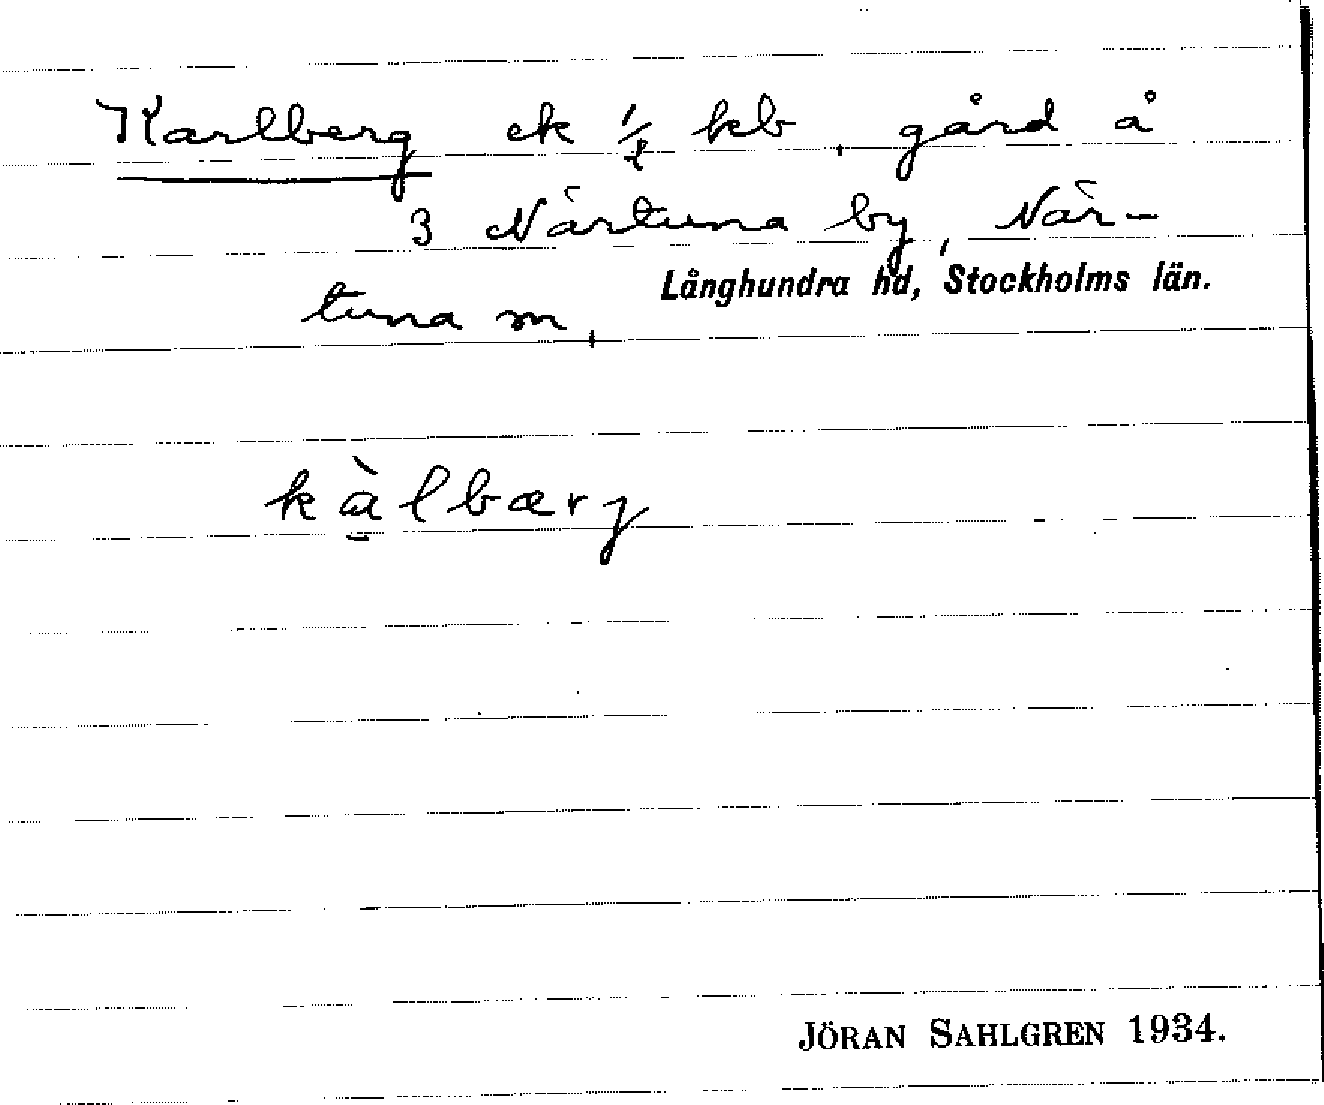 Karlberg ek ½ kb, gård å
3 Närtuna by, När-
Långhundra hd, Stockholms län.
tuna sn,
kàlbærg
JÖRAN SAHLGREN 1934.